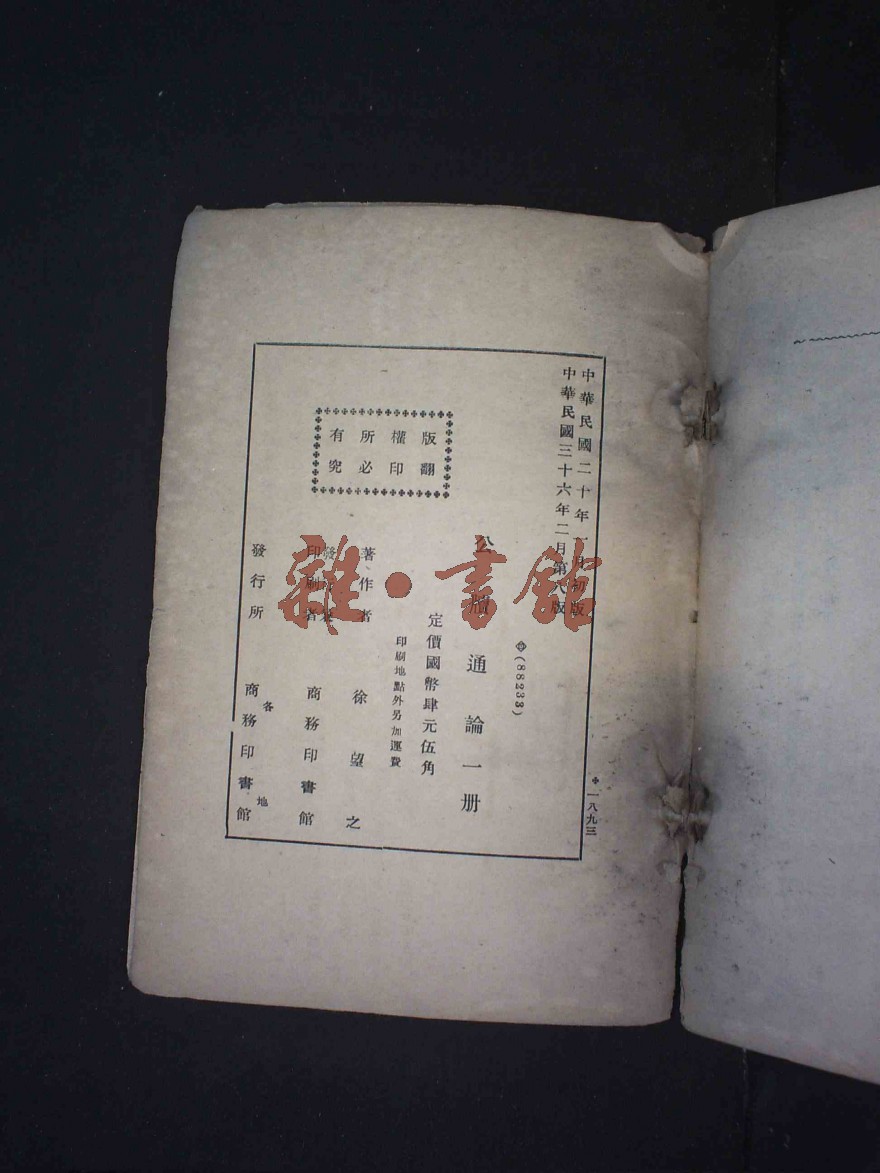 中華民國二十年 月初版
中華民國三十六年二月第八版
(88233)
公牘通論一册
定價國幣肆元伍角
印刷地點外另加運費
版權所有
翻印必究
著作者 徐望之
印刷者 商務印書館
發行所 各地
商務印書館
一八九三
雜·書館